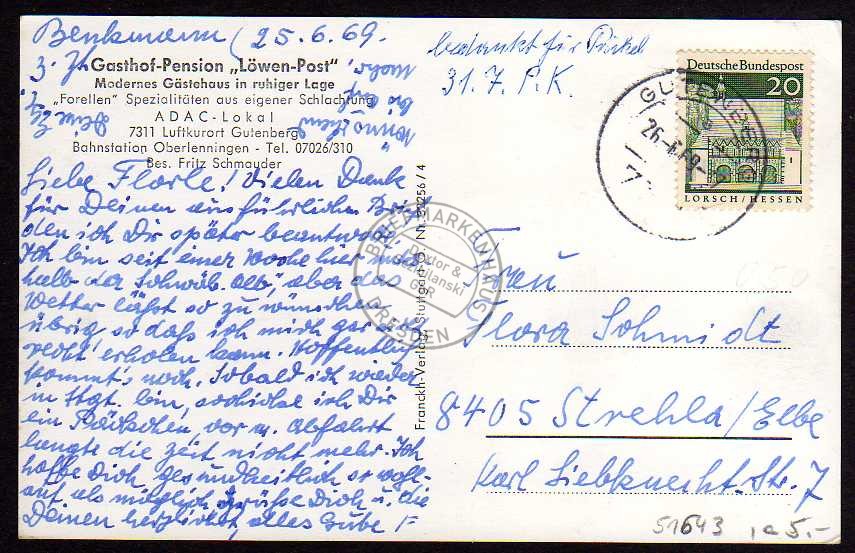 Benkmann (25.6.69.
Gasthof-Pension „Löwen-Post"
Modernes Gästehaus in ruhiger Lage
„Forellen" Spezialitäten aus eigener Schlachtung
ADAC-Lokal
7311 Luftkurort Gutenberg
Bahnstation Oberlenningen - Tel. 07026/310
Bes. Fritz Schmauder
Liebe Florle! Vielen Dank
für Deinen ausführlichen Brief
den ich Dir später beantworte.
Ich bin seit einer Woche hier
halb der Schwäb. Alb, aber das
Wetter läßt so zu wünschen
übrig, so daß ich mich gar nicht
recht erholen kann. Hoffentlich
kommt's noch. Sobald ich wieder
in Stgt. bin, schicke ich Dir
ein Päckchen, vor m. Abfahrt
langte die Zeit nicht mehr. Ich
hoffe Dich gesundheitlich so wohl-
auf als möglich grüße Dich u. die
Deinen herzlichst, alles Gute
bedankt für Päckel
31.7. P.K.
Deutsche Bundespost
20
LORSCH/HESSEN
GUTENBERG
Franckh-Verlag, Stuttgart
256/4
BRIEFMARKENHAUS
Doxtor &
GbR
DRESDEN
Frau
Flora Schmidt
8405 Strehla/Elbe
Karl Liebknecht-Str. 7
51643
5.-